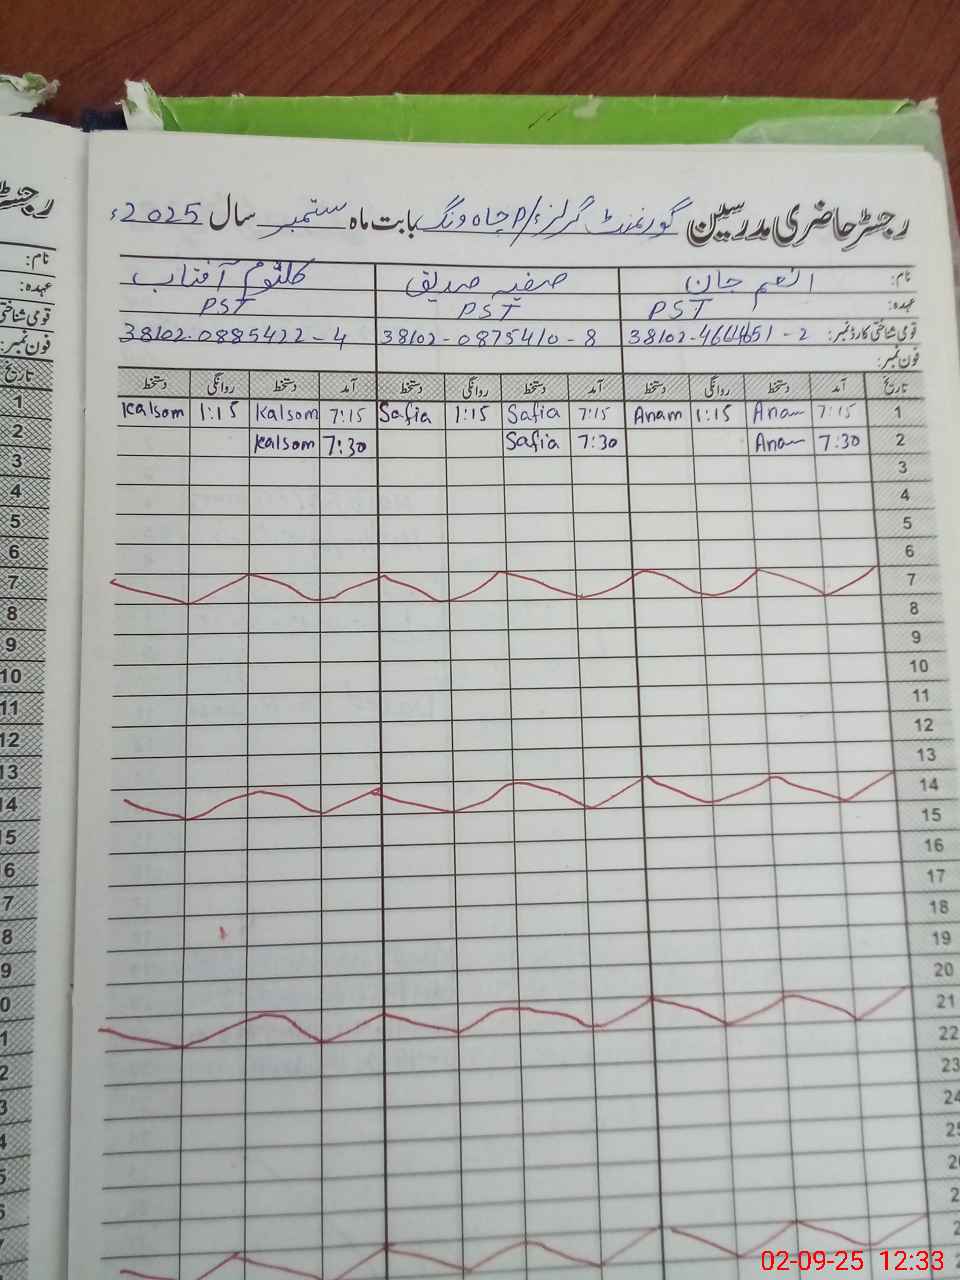 رجسٹر حاضری مدرسین گورنمنٹ گرلز P/ چاہ ونگ بابت ماہ ستمبر سال 2025ء
نام: انعم جان صفیہ صدیق کلثوم آفتاب
عہدہ: PST PST PST
قومی شناختی کارڈ نمبر: 38102-4664651-2 38102-0875410-8 38102-0885422-4
فون نمبر:
تاریخ آمد دستخط روانگی دستخط آمد دستخط روانگی دستخط آمد دستخط روانگی دستخط
1 7:15 Anam 1:15 Anam 7:15 Safia 1:15 Safia 7:15 Kalsom 1:15 Kalsom
2 7:30 Anam 7:30 Safia 7:30 Kalsom
3
4
5
6
7
8
9
10
11
12
13
14
15
16
17
18
19
20
21
22
23
24
25
رجسٹر
نام:
عہدہ:
قومی شناختی
فون نمبر:
تاریخ
1
2
3
4
5
6
7
8
9
10
11
12
13
14
15
02-09-25 12:33